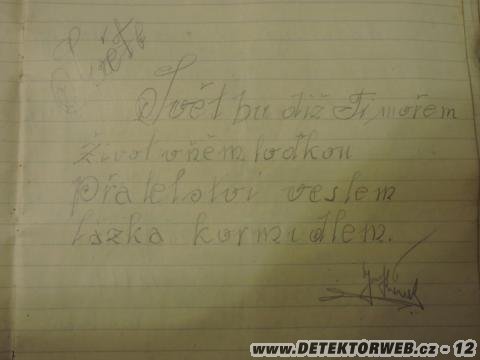 Svět
Svět bu diž Ti mořem
život v něm loďkou
Přátelství veslem
lázka kormidlem.
www.DETEKTORWEB.cz - 12